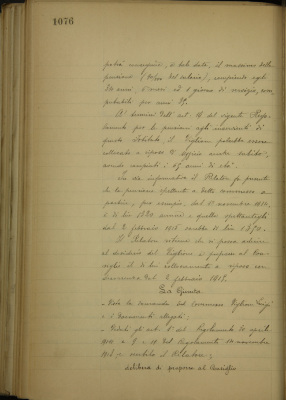 1076
potrà conseguire, a tale data, il massimo della
pensione (90/100 del salario), compiendo egli
anni, 6 mesi ed 8 giorni di servizio,
per anni 29.
A' termini dell'art. 16 del vigente Rego-
lamento per le pensioni agli inservienti di
questo Istituto, il Viglioni potrebbe essere
collocato a riposo d'ufficio anche subito,
avendo compiuti i 65 anni di età.
In via informativa il Relatore fa presente
che la pensione spettante a detto commesso
per esempio, dal 1° novembre 1914,
è di lire 1630 annue e quella spettantegli
dal 2 febbraio 1915 sarebbe di lire 1890.
Il Relatore ritiene che si possa aderire
al desiderio del Viglioni e proporre al Con-
siglio il di lui collocamento a riposo con
decorrenza dal 2 febbraio 1915.
La Giunta
- Vista la domanda del Commesso Viglioni Luigi
e i documenti allegati;
- Veduti gli art. del Regolamento 20 aprile
e 9 - 10 del Regolamento novembre
1913 e sentito il Relatore;
delibera di proporre al Consiglio